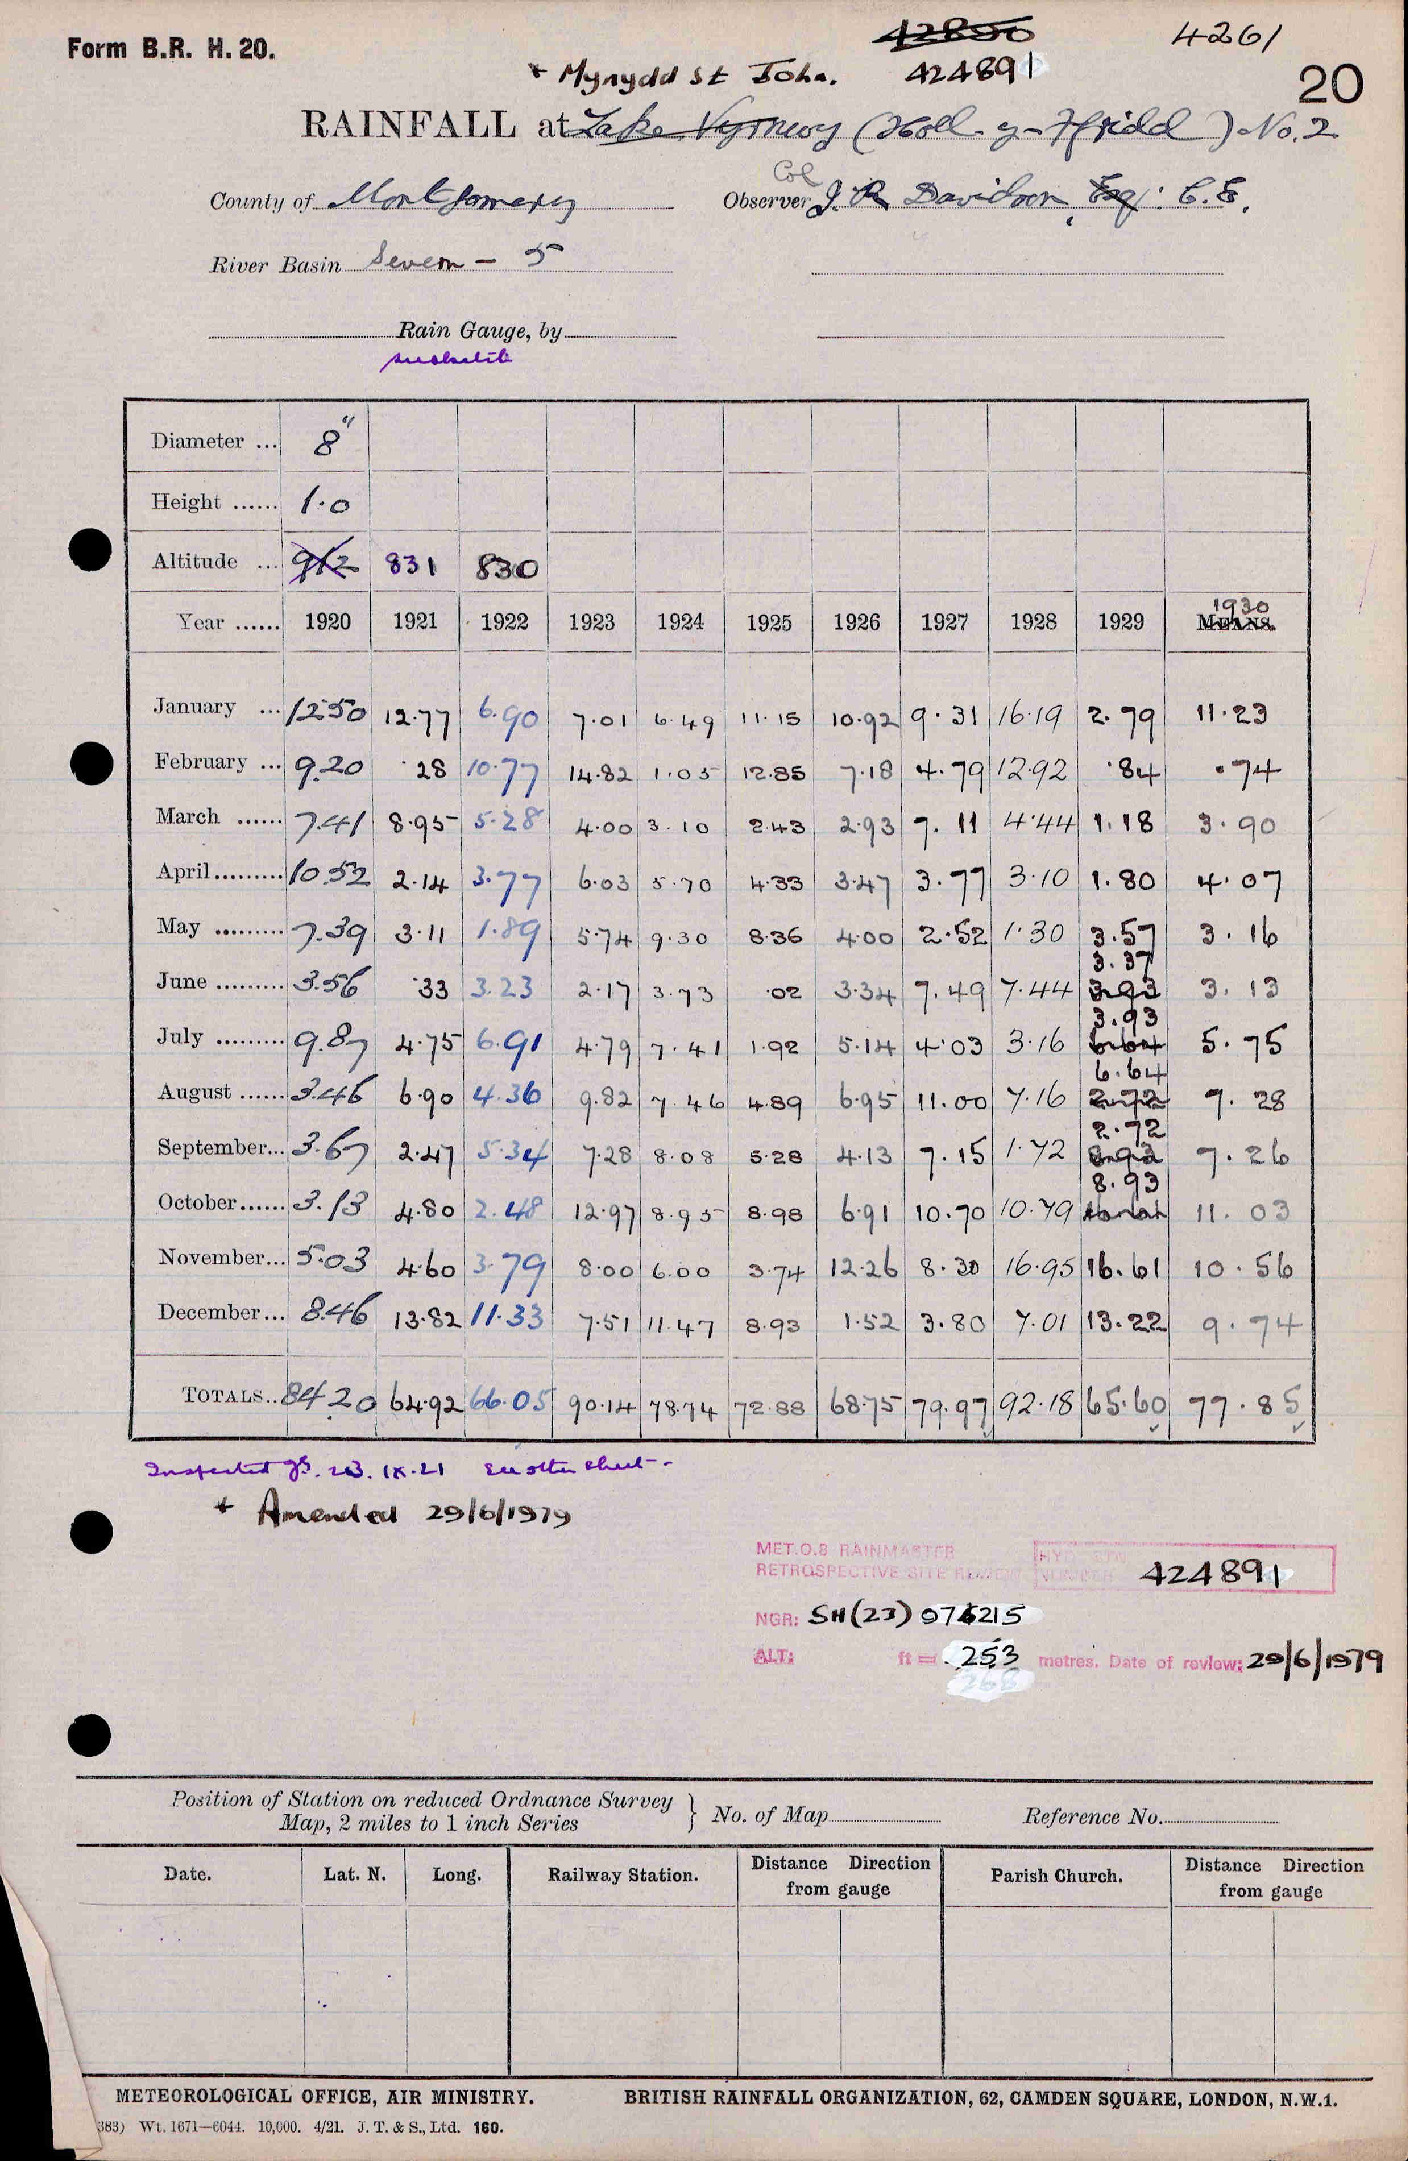 Form B.R. H. 20.
42800
4261
+ Mynydd St John.
424891
20
RAINFALL at Lake Vyrnwy (Moel-y-Ffridd) No. 2
County of Montgomery
Col
Observer J. R Davidson, Esq: C.E.
River Basin Severn - 5
Rain Gauge, by
Diameter ... 8"
Height ...... 1.0
Altitude ... 912 831 830
1930
Year ...... 1920 1921 1922 1923 1924 1925 1926 1927 1928 1929 MEANS.
January ... 12.50 12.77 6.90 7.01 6.49 11.15 10.92 9.31 16.19 2.79 11.23
February ... 9.20 .28 10.77 14.82 1.05 12.85 7.18 4.79 12.92 .84 .74
March ...... 7.41 8.95 5.28 4.00 3.10 2.43 2.93 7.11 4.44 1.18 3.90
April ......... 10.52 2.14 3.77 6.03 5.70 4.33 3.47 3.77 3.10 1.80 4.07
May ......... 7.39 3.11 1.89 5.74 9.30 8.36 4.00 2.52 1.30 3.57 3.16
3.37
June ......... 3.56 .33 3.23 2.17 3.73 .02 3.34 7.49 7.44 3.93 3.13
3.93
July ......... 9.87 4.75 6.91 4.79 7.41 1.92 5.14 4.03 3.16 6.64 5.75
6.64
August ...... 3.46 6.90 4.36 9.82 7.46 4.89 6.95 11.00 7.16 2.72 7.28
2.72
September... 3.67 2.47 5.34 7.28 8.08 5.28 4.13 7.15 1.72 8.93 7.26
8.93
October...... 3.13 4.80 2.48 12.97 8.95 8.98 6.91 10.70 10.79 11.03
November... 5.03 4.60 3.79 8.00 6.00 3.74 12.26 8.30 16.95 16.61 10.56
December... 8.46 13.82 11.33 7.51 11.47 8.93 1.52 3.80 7.01 13.22 9.74
TOTALS.. 84.20 64.92 66.05 90.14 78.74 72.88 68.75 79.97 92.18 65.60 77.85
Inspected 23.IX.21 See other sheet.
+ Amended 29/6/1979
MET.O.8 RAINMASTER
RETROSPECTIVE SITE REVIEW
424891
NGR: SH(23) 076215
ALT: ft = 253 metres. Date of review: 29/6/1979
Position of Station on reduced Ordnance Survey
Map, 2 miles to 1 inch Series } No. of Map Reference No.
Date. Lat. N. Long. Railway Station. Distance Direction from gauge Parish Church. Distance Direction from gauge
METEOROLOGICAL OFFICE, AIR MINISTRY. BRITISH RAINFALL ORGANIZATION, 62, CAMDEN SQUARE, LONDON, N.W.1.
383) Wt. 1671—6044. 10,000. 4/21. J. T. & S., Ltd. 160.